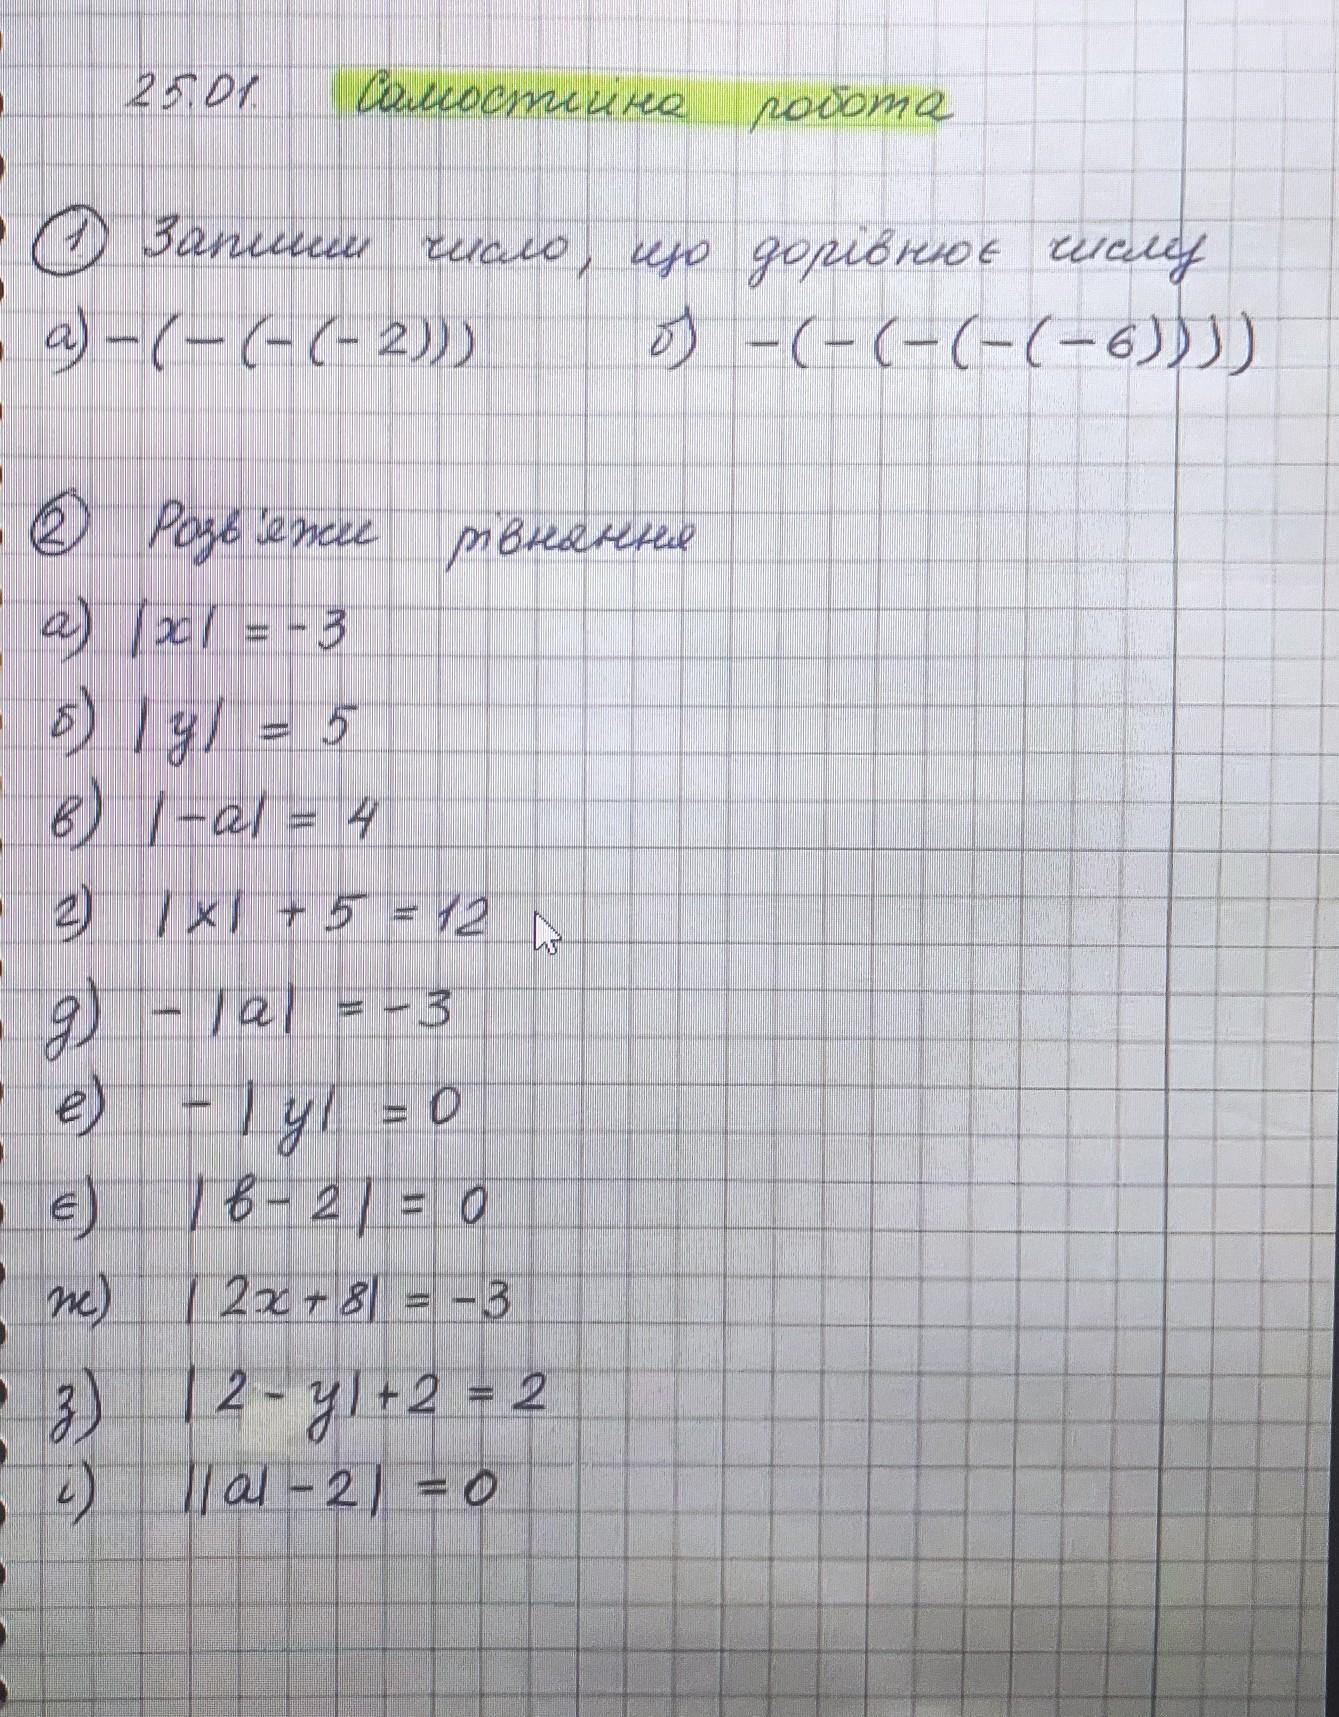 25.01. Самостійна робота
1 Запиши число, що дорівнює числу
а) -(-(-(-2))) б) -(-(-(-(-6))))
2 Розв'яжи рівняння
а) |x| = -3
б) |y| = 5
в) |-a| = 4
г) |x| + 5 = 12
д) - |a| = -3
е) - |y| = 0
є) |в - 2| = 0
ж) |2x + 8| = -3
з) |2 - y| + 2 = 2
і) ||a| - 2| = 0